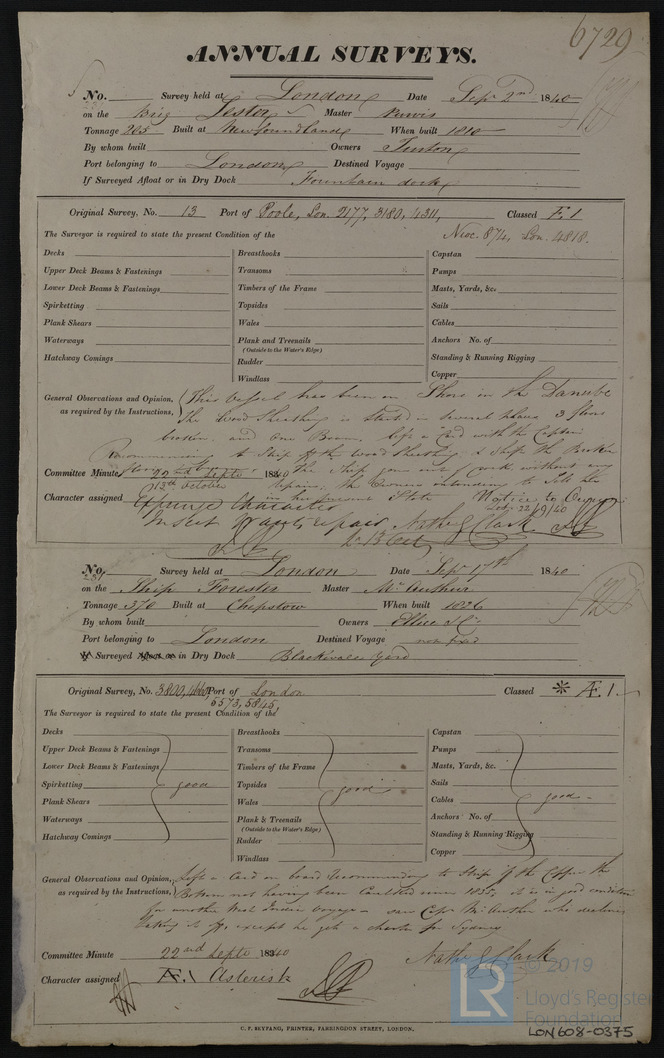 6729
ANNUAL SURVEYS.
No. Survey held at London Date Sepr 2nd 1840
on the Brig Lester Master Purvis
Tonnage 205 Built at Newfoundland When built 1810
By whom built Owners
Port belonging to London Destined Voyage
If Surveyed Afloat or in Dry Dock Fountain dock
Original Survey, No. 13 Port of Poole, Lon. 2177, 3180, 4311, Classed Æ 1
The Surveyor is required to state the present Condition of the 874, Lon. 4818.
Decks Breasthooks Capstan
Upper Deck Beams & Fastenings Transoms Pumps
Lower Deck Beams & Fastenings Timbers of the Frame Masts, Yards, &c.
Spirketting Topsides Sails
Plank Shears Wales Cables
Waterways Plank and Treenails Anchors No. of
(Outside to the Water's Edge)
Hatchway Comings Rudder Standing & Running Rigging
Windlass Copper
General Observations and Opinion, This Vessel has been on Shore in the Danube
as required by the Instructions, The Wood Sheathing is started in several places 3 floors
broken and One Beam, left a Card with the Captain
Recommending to Strip off the Wood Sheathing & Ship the Broken
Committee Minute 22nd Septr 1840 the Ship gone out of dock without any
13th October repairs, the Owners intending to Sell her
Character assigned in her present State Notice to Owners
Expunge Character 22/9/40
Insert repair Nathl G Clark
No. Survey held at London Date Sepr 17th 1840
on the Ship Forester Master McArthur
Tonnage 370 Built at Chepstow When built 1826
By whom built Owners Ellice & Co
Port belonging to London Destined Voyage not fixed
If Surveyed Afloat or in Dry Dock Blackwall Yard
Original Survey, No. 3800, 4460, Port of London Classed * Æ 1.
5573, 5845,
The Surveyor is required to state the present Condition of the
Decks Breasthooks Capstan
Upper Deck Beams & Fastenings Transoms Pumps
Lower Deck Beams & Fastenings Timbers of the Frame Masts, Yards, &c.
Spirketting good Topsides good Sails
Plank Shears Wales Cables good
Waterways Plank & Treenails Anchors No. of
(Outside to the Water's Edge)
Hatchway Comings Rudder Standing & Running Rigging
Windlass Copper
General Observations and Opinion, Left a Card on board recommending to Strip off the Copper the
as required by the Instructions, Bottom not having been Caulked since 1835, it is in good condition
for another West India Voyage - saw Capt McArthur who declines
taking it off, except he gets a charter for Sydney
Committee Minute 22nd Septr 1840 Nathl G Clark
Character assigned Æ 1 Asterisk
C. F. SEYFANG, PRINTER, FARRINGDON STREET, LONDON.
LR © 2019
Lloyd's Register
Foundation
LON608-0375